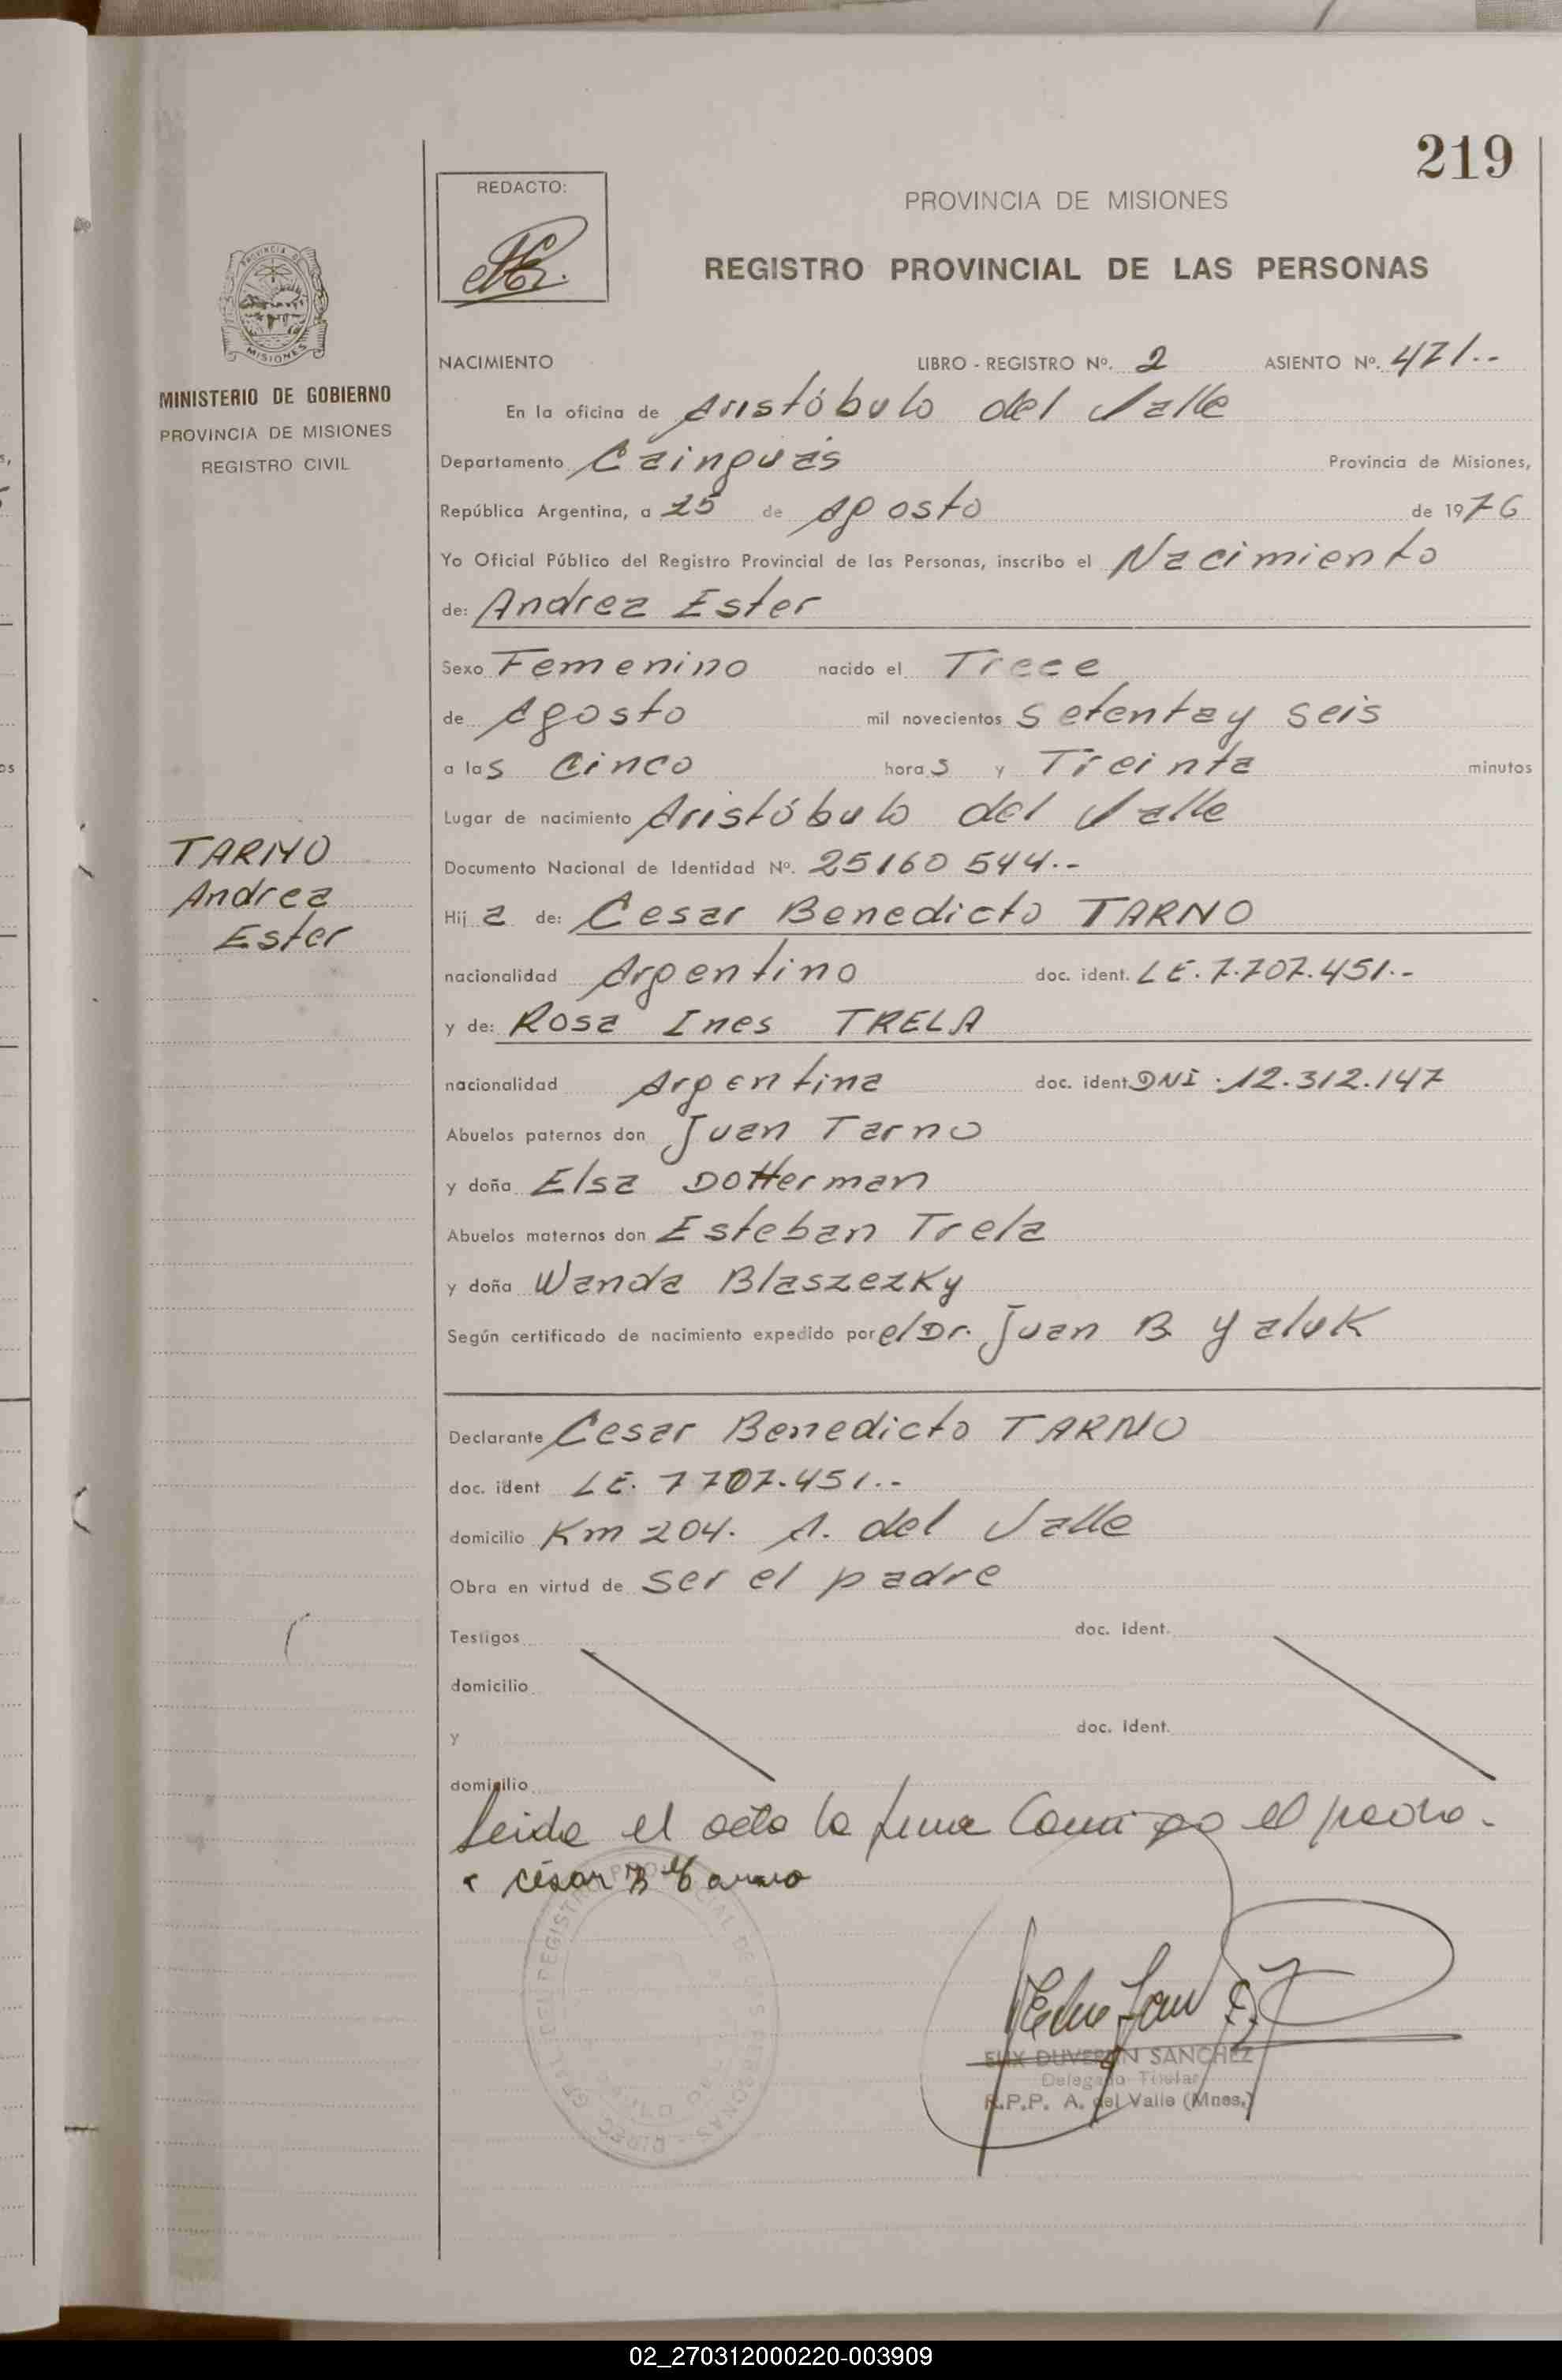 219
REDACTO:
PROVINCIA DE MISIONES
REGISTRO PROVINCIAL DE LAS PERSONAS
PROVINCIA DE
MISIONES
MINISTERIO DE GOBIERNO
PROVINCIA DE MISIONES
REGISTRO CIVIL
NACIMIENTO LIBRO - REGISTRO Nº. 2 ASIENTO Nº. 471.--
En la oficina de Aristóbulo del Valle
Departamento Cainguás Provincia de Misiones,
República Argentina, a 25 de Agosto de 1976
Yo Oficial Público del Registro Provincial de las Personas, inscribo el Nacimiento
de: Andrea Ester
Sexo Femenino nacido el Trece
de Agosto mil novecientos setenta y seis
a las cinco horas y Treinta minutos
Lugar de nacimiento Aristóbulo del Valle
TARNO
Andrea
Ester
Documento Nacional de Identidad Nº. 25160 544.--
Hija de: Cesar Benedicto TARNO
nacionalidad Argentino doc. ident. LE. 7.707.451.--
y de: Rosa Ines TRELA
nacionalidad Argentina doc. ident DNI. 12.312.147
Abuelos paternos don Juan Tarno
y doña Elsa Dotterman
Abuelos maternos don Esteban Trela
y doña Wanda Blaszezky
Según certificado de nacimiento expedido por el Dr. Juan B. Yaluk
Declarante Cesar Benedicto TARNO
doc. ident LE. 7707.451.--
domicilio Km 204. A. del Valle
Obra en virtud de ser el padre
Testigos doc. ident.
domicilio
y doc. ident.
domicilio
Leida el acta la firma Conmigo el padre.-
César B Tarno
DUVE N SANCHEZ
Delegado Titular
R.P.P. A. del Valle (Mnes.)
02_270312000220-003909